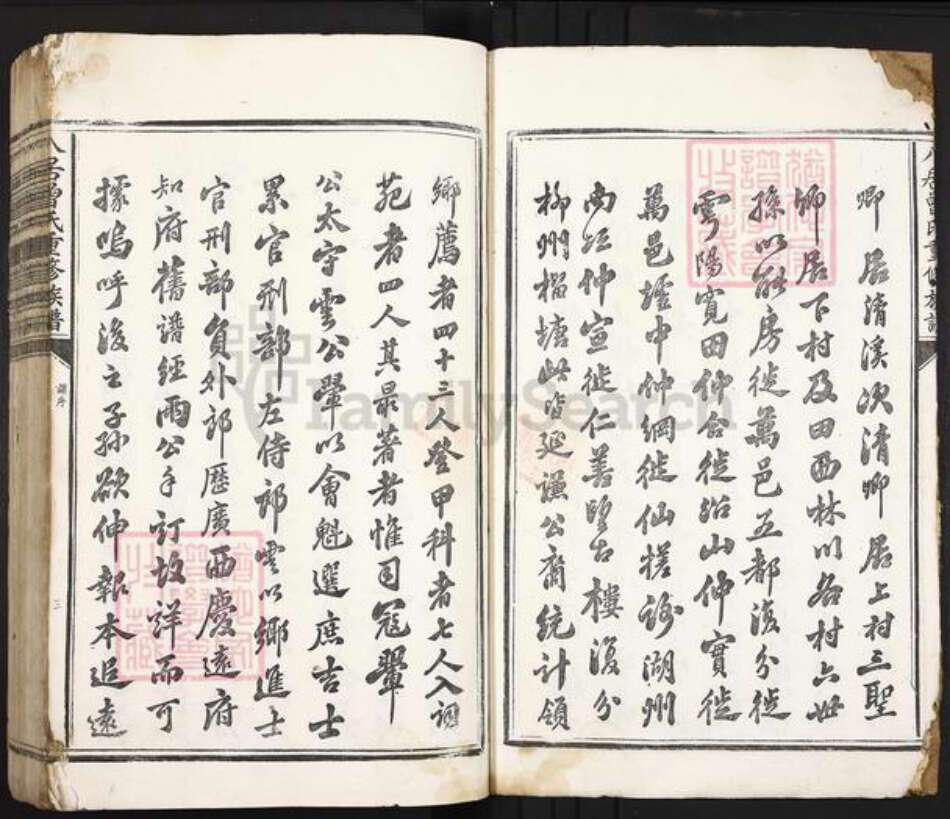 卿居清溪次清卿居上村三聖
卿居下村及田西林川各村六世
孫以能房徙萬邑五都後分徙
雲陽寬田仲合徙沿山仲實徙
萬邑逕中仲綱徙仙槎 湖州
尚 仲宣徙仁善堅古樓後分
柳州榴塘此皆延謙公裔統計領
鄉薦者四十三人登甲科者七人入詞
苑者四人其最著者惟司寇翬
公太守雲公翬以會魁選庶吉士
累官刑部左侍郎雲以鄉進士
官刑部負外郎歷廣西慶遠府
知府舊譜經兩公手訂故詳而可
據嗚呼後之子孫欲伸報本追遠
氏重修族譜
譜序
三
FamilySearch